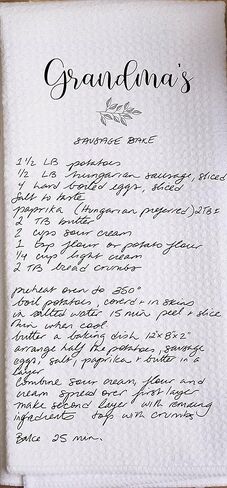 Grandma's
SAUSAGE BAKE
1 1/2 LB potatoes
1/2 LB hungarian sausage, sliced
4 hard boiled eggs, sliced
Salt to taste
paprika (Hungarian preferred) 2TBS
2 TB butter
2 cups sour cream
1 tsp flour or potato flour
1/4 cup light cream
2 TB bread crumbs
preheat oven to 350°
boil potatoes, coverd + in skins
in salted water 15 min peel + slice
thin when cool.
butter a baking dish 12"x8"x2"
arrange half the potatoes, sausage
eggs, salt, paprika + butter in a
layer
combine sour cream, flour and
cream spread over first layer
make second layer with remaing
ingredients top with crumbs
Bake 25 min.